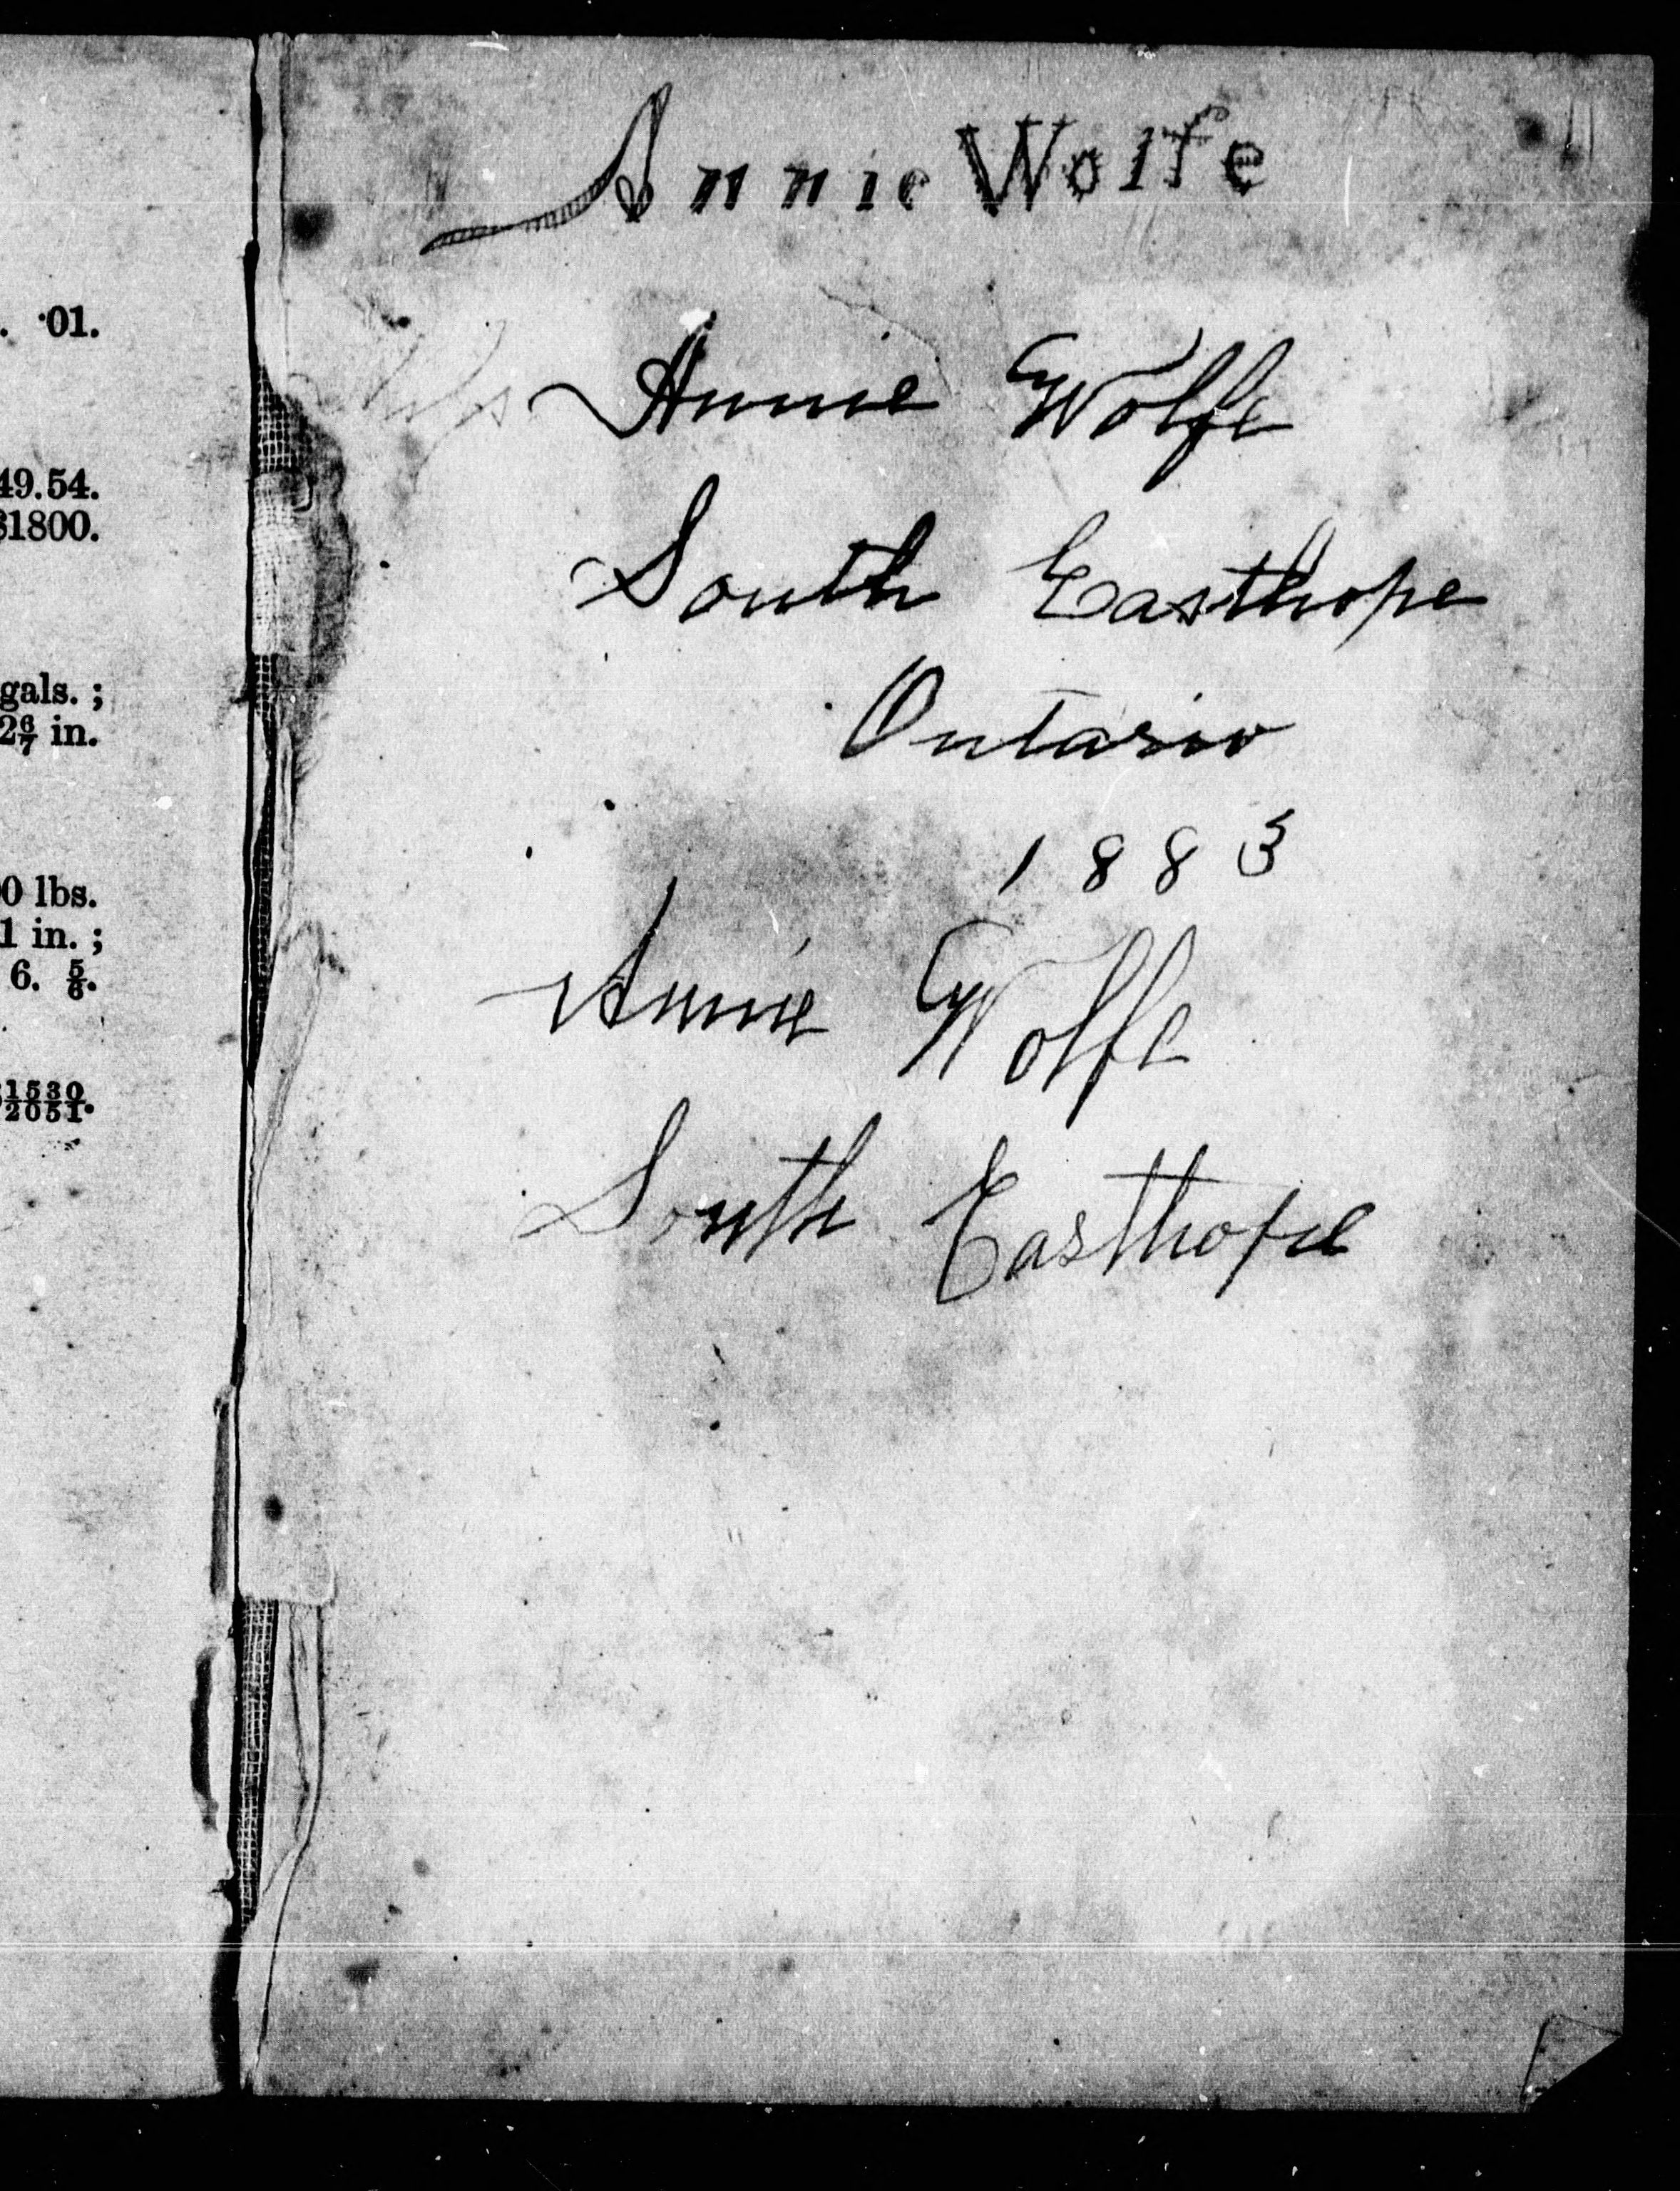 . 01.
49.54.
31800.
gals. ;
2 6/7 in.
0 lbs.
1 in. ;
6. 5/6.
1530/2051.
Annie Wolfe
Annie Wolfe
South Easthope
Ontario
1883
Annie Wolfe
South Easthope